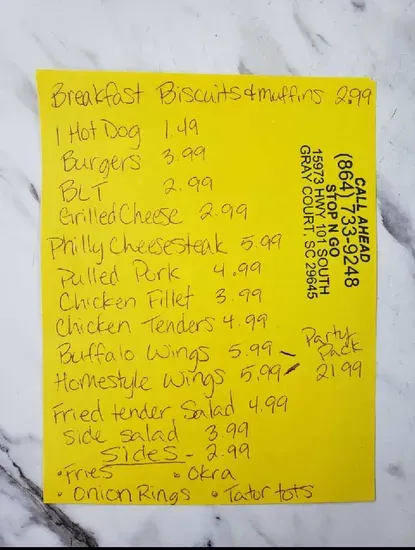 Breakfast Biscuits & muffins 2.99
1 Hot Dog 1.49
Burgers 3.99
BLT 2.99
Grilled Cheese 2.99
Philly Cheesesteak 5.99
Pulled Pork 4.99
Chicken Fillet 3.99
Chicken Tenders 4.99
Buffalo Wings 5.99
Homestyle Wings 5.99
Party
Pack
21.99
Fried tender Salad 4.99
Side Salad 3.99
Sides - 2.99
• Fries • Okra
• Onion Rings • Tator tots
CALL AHEAD
(864) 733-9248
STOP N GO
15973 HWY 101 SOUTH
GRAY COURT, SC 29645